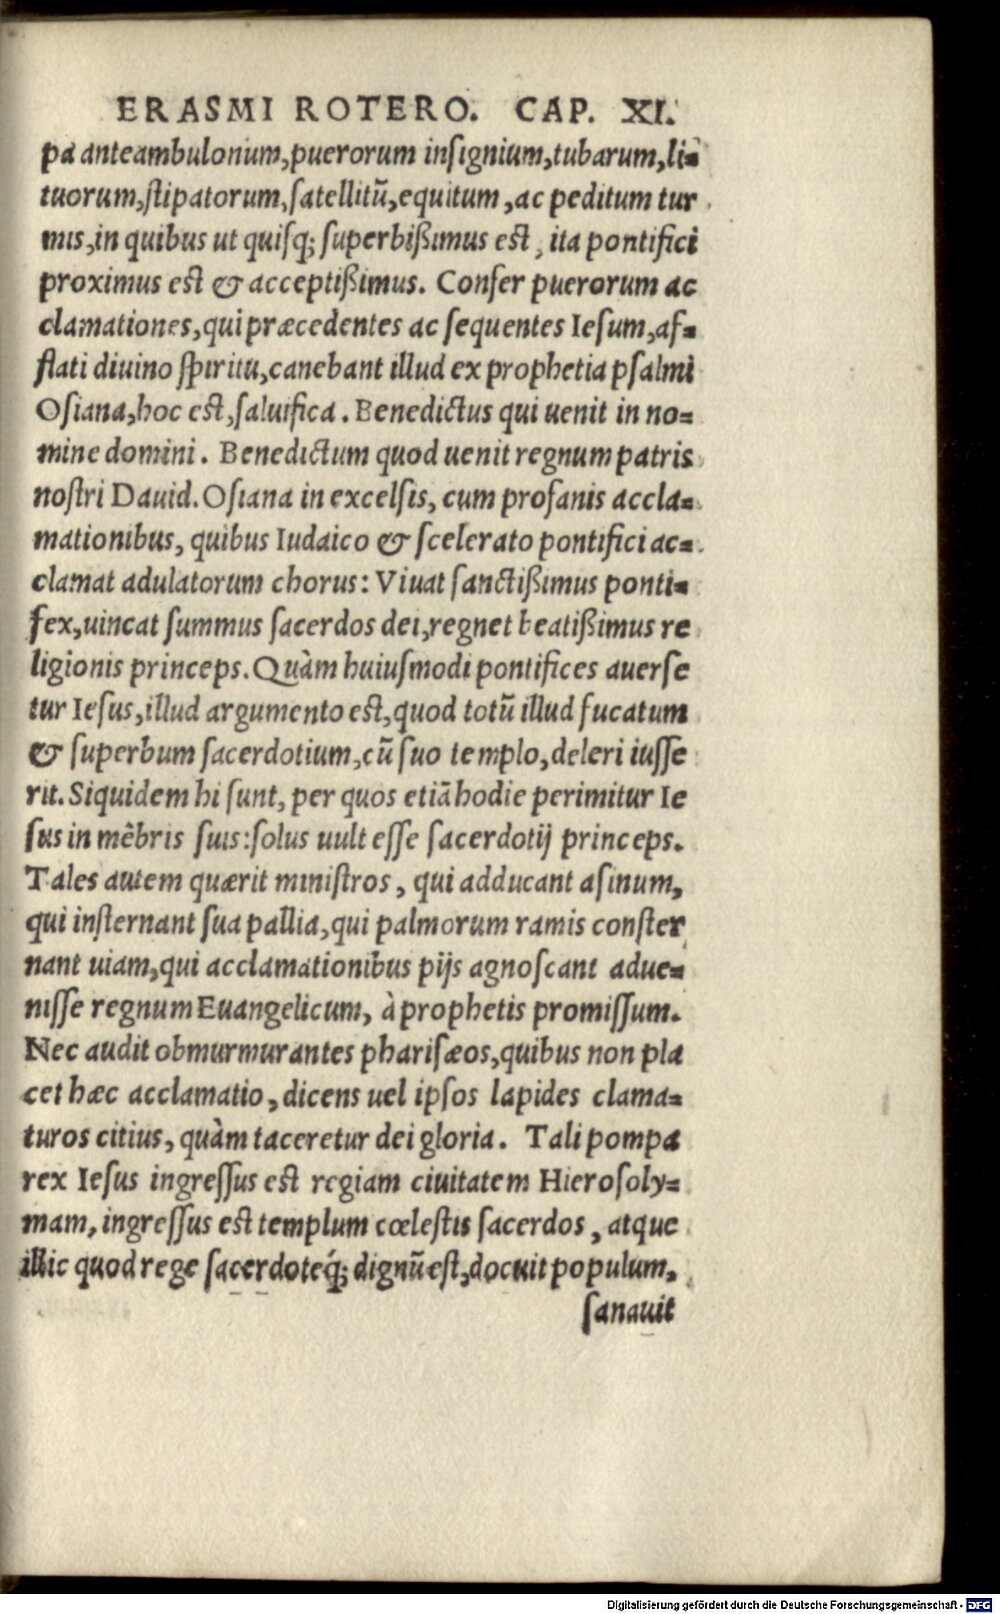 ERASMI ROTERO. CAP. XI.
pa anteambulonum, puerorum insignium, tubarum, li-
tuorum, stipatorum, satellitū, equitum, ac peditum tur
mis, in quibus ut quisq; superbißimus est, ita pontifici
proximus est & acceptißimus. Confer puerorum ac
clamationes, qui præcedentes ac sequentes Iesum, af-
flati diuino spiritu, canebant illud ex prophetia psalmi
Osiana, hoc est, saluifica. Benedictus qui uenit in no-
mine domini. Benedictum quod uenit regnum patris
nostri Dauid. Osiana in excelsis, cum profanis accla-
mationibus, quibus Iudaico & scelerato pontifici ac-
clamat adulatorum chorus: Viuat sanctißimus ponti-
fex, uincat summus sacerdos dei, regnet beatißimus re
ligionis princeps. Quàm huiusmodi pontifices auerse
tur Iesus, illud argumento est, quod totū illud fucatum
& superbum sacerdotium, cū suo templo, deleri iusse
rit. Siquidem hi sunt, per quos etiā hodie perimitur Ie
sus in mēbris suis: solus uult esse sacerdotij princeps.
Tales autem quærit ministros, qui adducant asinum,
qui insternant sua pallia, qui palmorum ramis conster
nant uiam, qui acclamationibus pijs agnoscant adue-
nisse regnum Euangelicum, à prophetis promissum.
Nec audit obmurmurantes pharisæos, quibus non pla
cet hæc acclamatio, dicens uel ipsos lapides clama-
turos citius, quàm taceretur dei gloria. Tali pompa
rex Iesus ingressus est regiam ciuitatem Hierosoly-
mam, ingressus est templum cœlestis sacerdos, atque
illic quod rege sacerdoteq́; dignū est, docuit populum,
sanauit
Digitalisierung gefördert durch die Deutsche Forschungsgemeinschaft - DFG